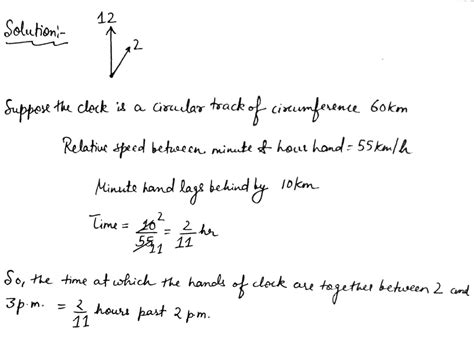 12
Solution:-
2
Suppose the clock is a circular track of circumference 60km
Relative speed between minute & hour hand = 55km/h
Minute hand lags behind by 10km
Time = 10 2 / 55 11 = 2/11 hr
So, the time at which the hands of clock are together between 2 and
3 p.m. = 2/11 hours past 2 pm.